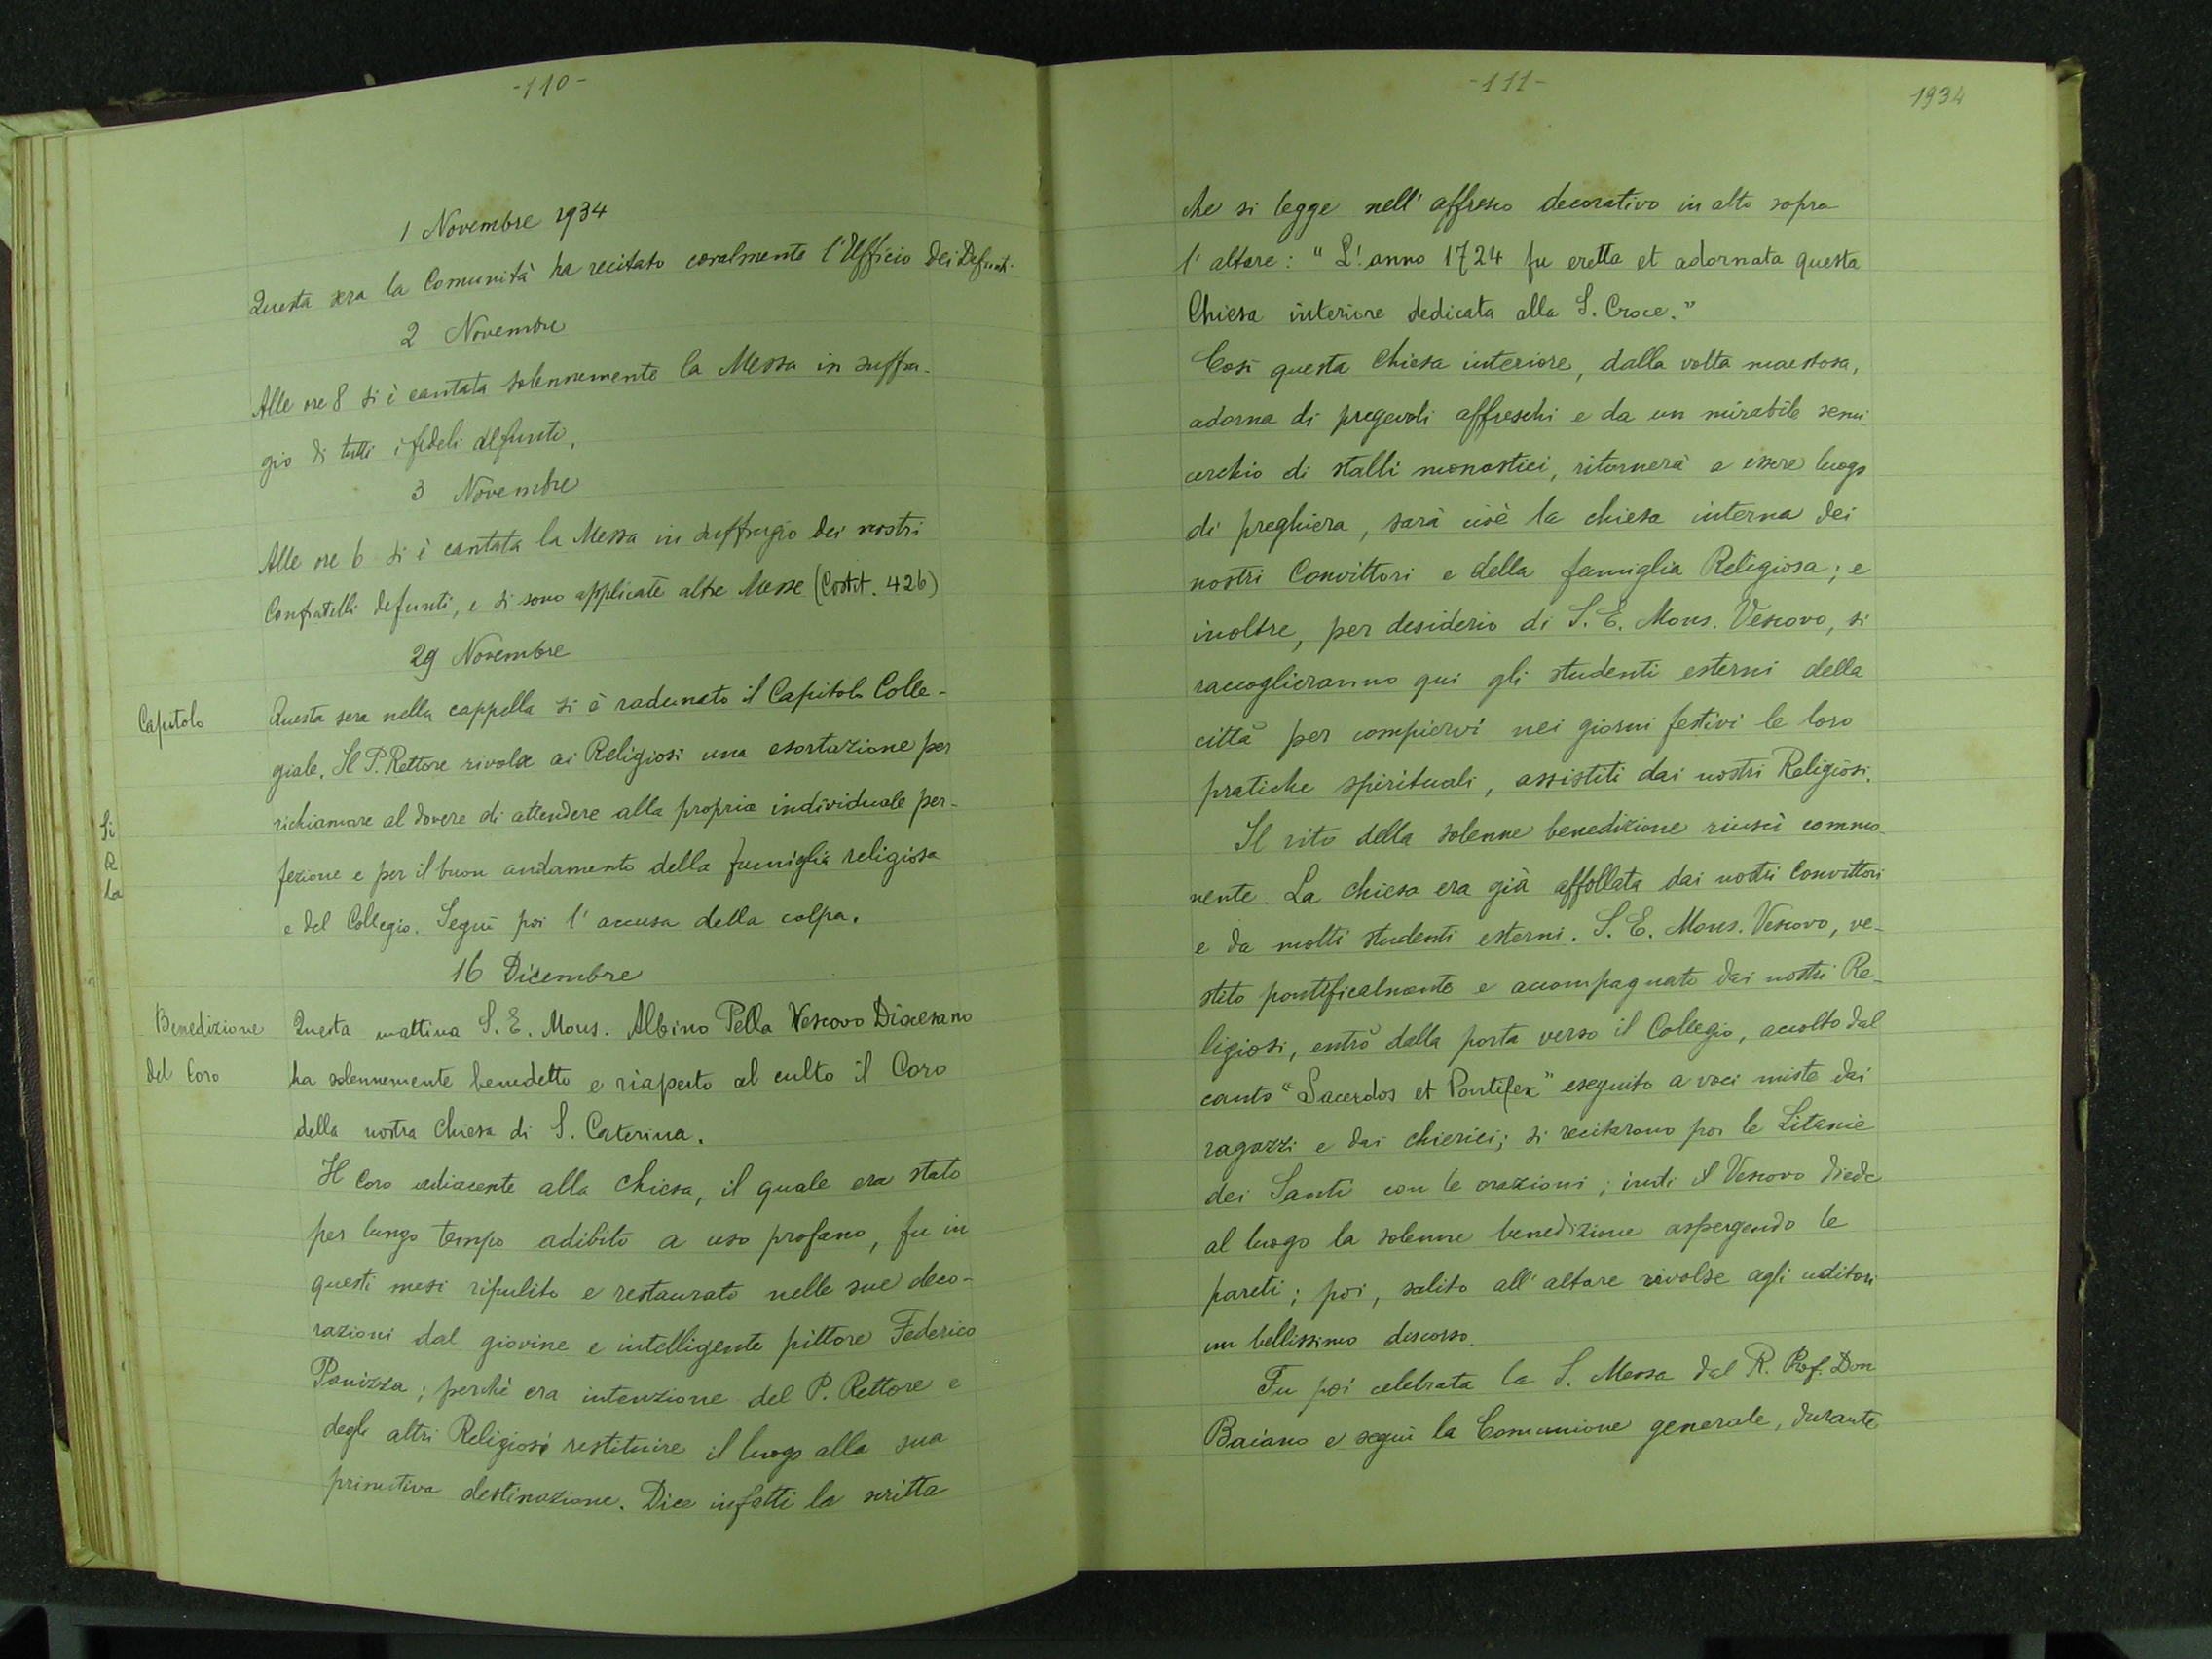 -110-
1 Novembre 1934
Questa sera la Comunità ha recitato coralmente l'Ufficio dei Defunti.
2 Novembre
Alle ore 8 si è cantata solennemente la Messa in suffra-
gio di tutti i fedeli defunti.
3 Novembre
Alle ore 6 si è cantata la Messa in suffragio dei nostri
Confratelli defunti, e si sono applicate altre Messe (Costit. 426)
29 Novembre
Capitolo
Questa sera nella cappella si è radunato il Capitolo Colle-
giale. Il P. Rettore rivolse ai Religiosi una esortazione per
richiamare al dovere di attendere alla propria individuale per-
fezione e per il buon andamento della famiglia religiosa
e del Collegio. Seguì poi l'accusa della colpa.
Si
R
la
16 Dicembre
Benedizione
del Coro
Questa mattina S. E. Mons. Albino Pella Vescovo Diocesano
ha solennemente benedetto e riaperto al culto il Coro
della nostra Chiesa di S. Caterina.
Il Coro adiacente alla chiesa, il quale era stato
per lungo tempo adibito a uso profano, fu in
questi mesi ripulito e restaurato nelle sue deco-
razioni dal giovine e intelligente pittore Federico
Panizza; perchè era intenzione del P. Rettore e
degli altri Religiosi restituire il luogo alla sua
primitiva destinazione. Dice infatti la scritta
-111-
1934
che si legge nell'affresco decorativo in alto sopra
l'altare: "L'anno 1724 fu eretta et adornata questa
Chiesa interiore dedicata alla S. Croce."
Così questa Chiesa interiore, dalla volta maestosa,
adorna di pregevoli affreschi e da un mirabile semi-
cerchio di stalli monastici, ritornerà a essere luogo
di preghiera, sarà cioè la chiesa interna dei
nostri Convittori e della famiglia Religiosa; e
inoltre, per desiderio di S. E. Mons. Vescovo, si
raccoglieranno qui gli studenti esterni della
città per compiervi nei giorni festivi le loro
pratiche spirituali, assistiti dai nostri Religiosi.
Il rito della solenne benedizione riuscì commo-
vente. La chiesa era già affollata dai nostri Convittori
e da molti studenti esterni. S. E. Mons. Vescovo, ve-
stito pontificalmente e accompagnato dai nostri Re-
ligiosi, entrò dalla porta verso il Collegio, accolto dal
canto "Sacerdos et Pontifex" eseguito a voci miste dai
ragazzi e dai chierici; si recitarono poi le Litanie
dei Santi con le orazioni; indi il Vescovo diede
al luogo la solenne benedizione aspergendo le
pareti; poi, salito all'altare rivolse agli uditori
un bellissimo discorso.
Fu poi celebrata la S. Messa dal R. Prof. Don
Baiano e seguì la Comunione generale, durante